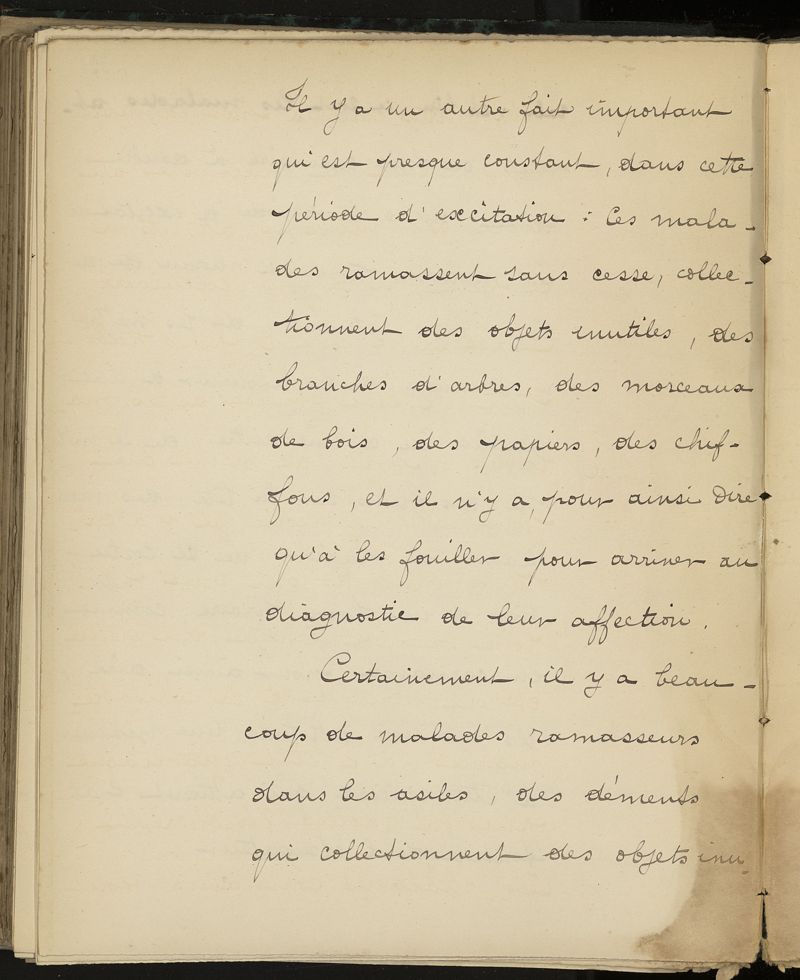 Il y a un autre fait important
qui est presque constant, dans cette
période d'excitation : Ces mala-
des ramassent sans cesse, collec-
tionnent des objets inutiles, des
branches d'arbres, des morceaux
de bois, des papiers, des chif-
fons, et il n'y a, pour ainsi dire
qu'à les fouiller pour arriver au
diagnostic de leur affection.
Certainement, il y a beau-
coup de malades ramasseurs
dans les asiles, des déments
qui collectionnent des objets inu